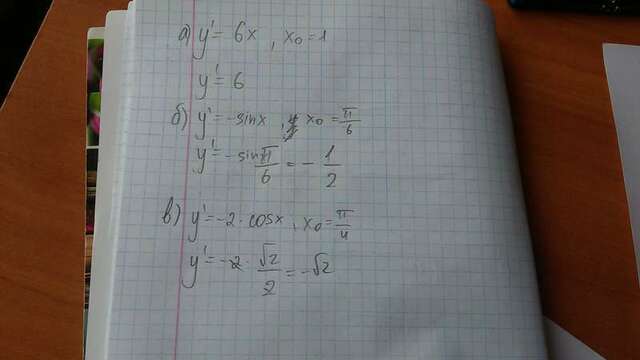 а) y' = 6x, x₀ = 1
y' = 6
б) y' = - sinx, x₀ = π/6
y' = - sin π/6 = - 1/2
в) y' = -2 · cosx, x₀ = π/4
y' = -2 · √2/2 = -√2